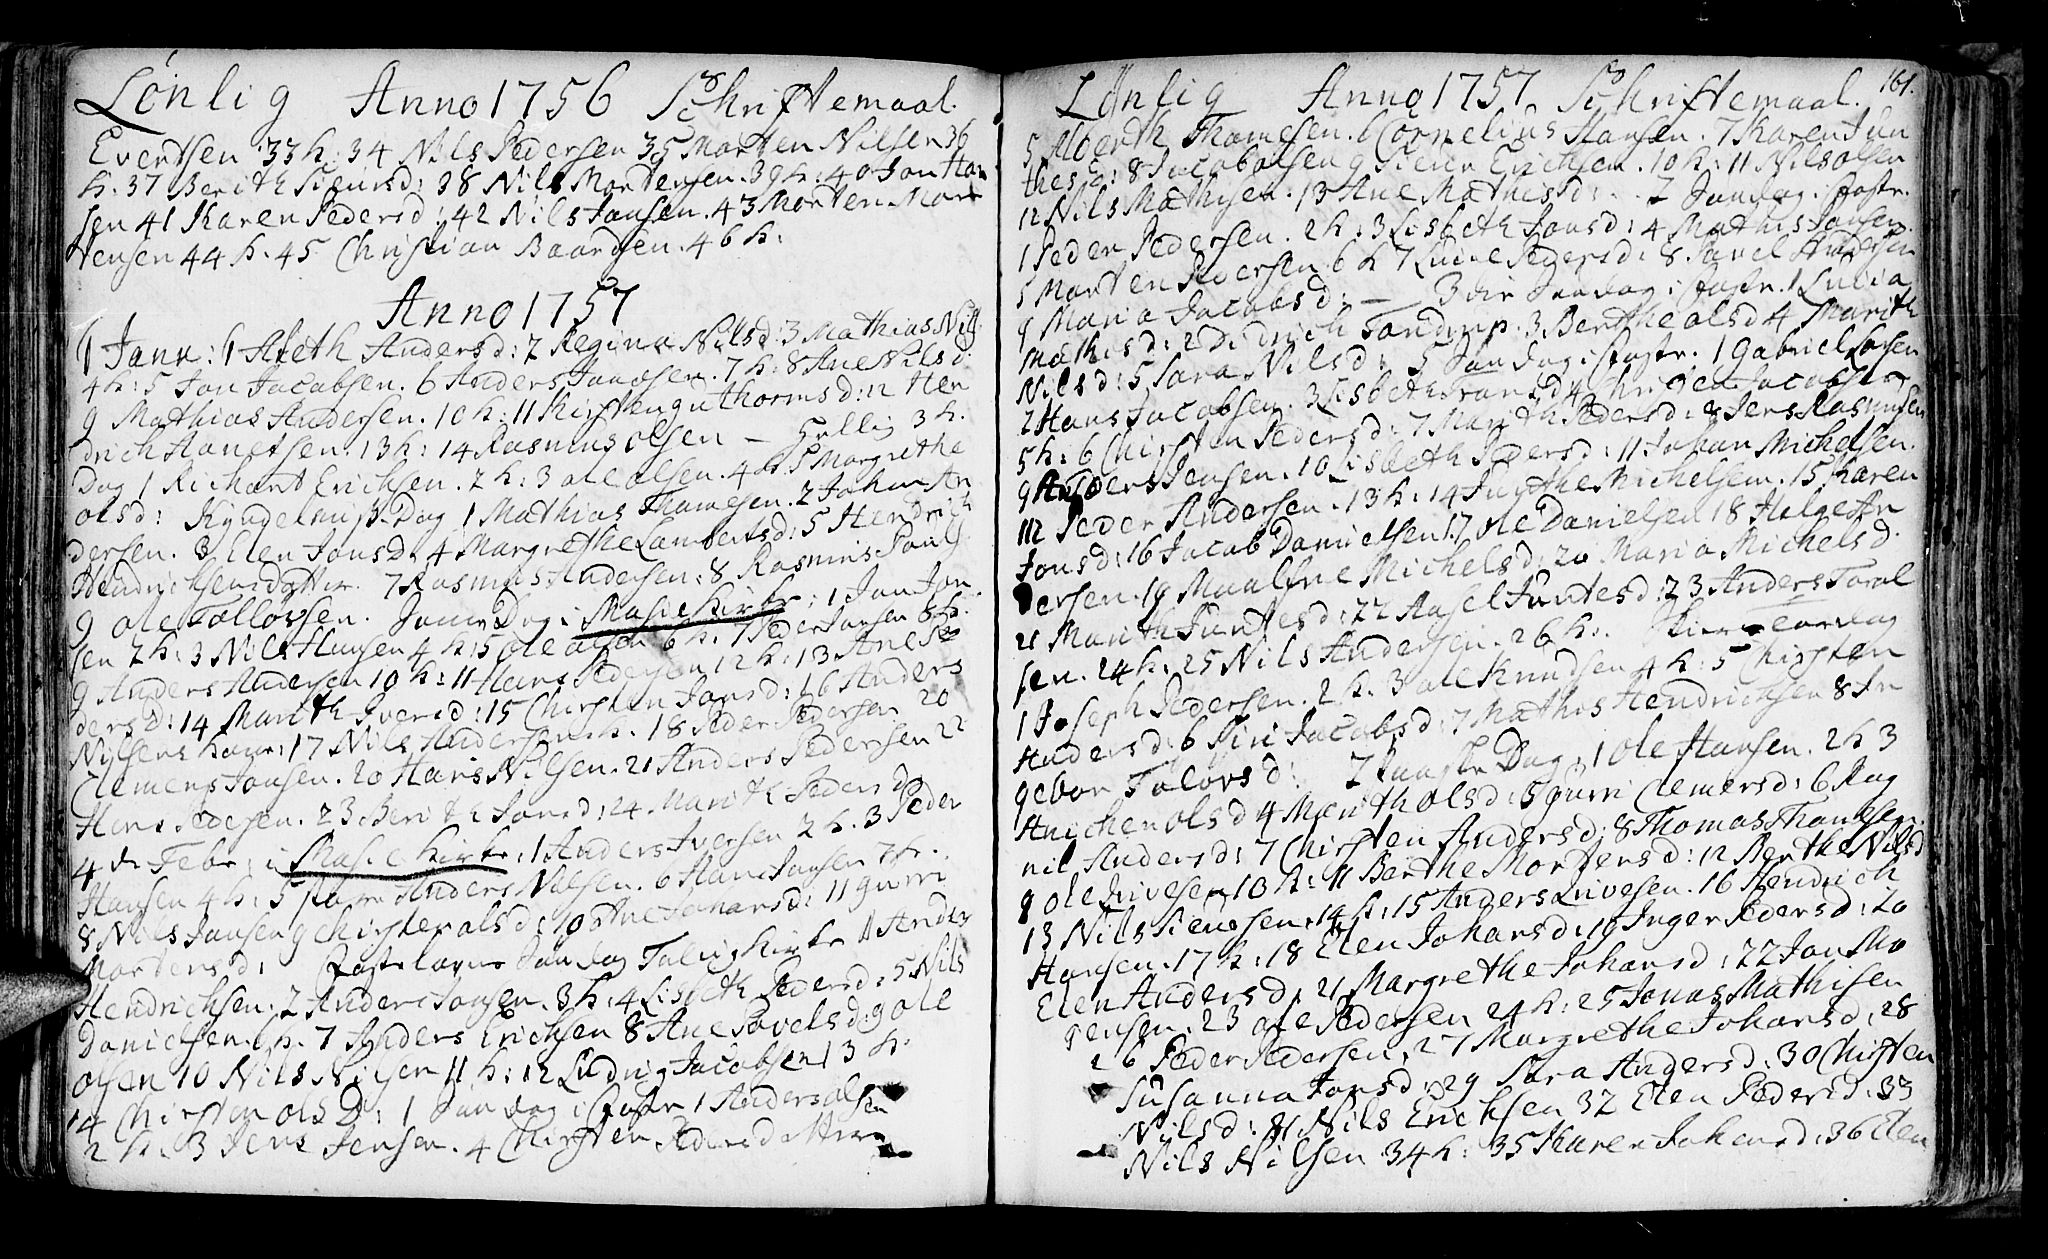 Lønlig Anno 1756 Schriftemaal.
Evertsen 33 h: 34 Nils Pedersen 35 Morten Nilsen 36
h: 37 Berith Siursd: 38 Nils Mortensen. 39 h: 40 Jon Han
sen 41 Karen Pedersd: 42 Nils Jansen. 43 Morten Mor
tensen 44 h. 45 Christian Baardsen. 46 h:
Anno 1757
6 Janu: 1 Andersd: 2 Regina Nilsd: 3 Mathias Nils
4 h: 5 Jon Jacobsen. 6 Anders Jonosen. 7 h: 8 Ane Nilsd:
9 Mathias Andersen. 10 h: 11 Kirsten guthormsd: 12 Hen
drich 13 h: 14 Rasmus olsen — Hellig 3 k.
Dag 1 Richart Erichsen. 2 h: 3 ole olsen. 4 h. 5 Margrethe
olsd: Kyndelmis. Dag 1 Mathias Thomesen. 2 Johan An
dersen. 3 Elen Jonsd. 4 Margrethe Lambertsd: 5 Hendrich
Hendrichsendotter. 7 Rasmus Andersen: 8 Rasmus Povels
9 ole Tollovsen. Dag i Masie Kirke: 1 Jan Jon
sen 2 h: 3 Nils Hansen 4 h: 5 ole olsen 6 h. 7 Peder Jansen 8 h.
9 Anders Andersen 10 h: 11 Hans Pedersen 12 h: 13 Ane Pe
dersd: 14 Marith Iversd: 15 Chirsten Jonsd: 16 Anders
Nilsens kone: 17 Nils Andersen h. 18 Peder Pedersen 20
Clemens Jonsen. 20 Hans Nilsen. 21 Anders Pedersen 22
Hans Pedesen. 23 Berith Jonsd: 24 Marith Pedersd
4 de Febr: i Masie Kirke: 1 Anders Iversen 2 h. 3 Peder
Hansen 4 h: 5 Anders Nilsen. 6 Hans Jansen 7 h.
8 Nils Jansen 9 Chirsten olsd: 10 Ane Johansd: 11 gurri
Mortensd: Fastelavns Søndag Talvig Kirke 1 Anders
Hendrichsen. 2 Anders Jonsen. 3 h: 4 Lisbeth Pedersd: 5 Nils
Danielsen. 6 h. 7 Anders Erichsen 8 Ane Povelsd: 9 ole
olsen 10 Nils Nilsen 11 h: 12 Ludvig Jacobsen 13 h.
14 Chirsten olsD: 1 Søndag i Faste 1 Anders olsen
2 h. 3 Jens Jensen. 4 Chirsten Pedersdatter
Lønlig Anno 1757 Schriftemaal. 161.
5 Alberth Thomesen. 6 Cornelius Hansen. 7 Karen Jun
thesd: 8 Jacob olsen 9 Peder Erichsen. 10 h: 11 Nils olsen
12 Nils Mathisen. 13 Ane Mathisd: 2 Søndag i faste.
1 Peder Pedersen. 2 h: 3 Lisbeth Jonsd: 4 Mathis Jonsen.
5 Morten Pedersen 6 h 7 Lucie Pedersd: 8 Povel Andersen
9 Maria Jacobsd: — 3die Søndag i faste. 1 Lucia
Mathisd: 2 Didrich Tandrup. 3 Berthe olsd 4 Marith
Nilsd: 5 Sara Nilsd: 5 Søndag i faste. 1 gabriel Larsen
2 Hans Jacobsen. 3 Lisbeth 4 Jacobsen
5 h: 6 Chirsten Pedersd: 7 Marith Pedersd: 8 Jens Rasmusen
9 Anders Jensen. 10 Lisbeth Pedersd: 11 Johan Michelsen.
12 Peder Andersen. 13 h: 14 Juntthe Michelsen. 15 Karen
Jonsd: 16 Jacob Danielsen 17 ole Danielsen 18 Helge An
dersen. 19 Michelsd: 20 Maria Michelsd.
21 Marith Juntesd: 22 Aasel Juntesd: 23 Anders Toral
sen. 24 h: 25 Nils Andersen. 26 h.
1 Joseph Pedersen. 2 h. 3 ole Knudsen 4 h: 5 Chirsten
Andersd: 6 Siri Jacobsd: 7 Mathis Hendrichsen 8 In
gebor Tolovsd: 2 Paaske Dag: 1 ole Hansen. 2 h 3
Anichen olsd 4 Marith olsd: 5 gurri Clemersd: 6 Rag
nil Andersd: 7 Chirsten Andersd: 8 Thomas Thomesen.
9 ole 10 h: 11 Berthe Mortensd: 12 Berthe Nilsd
13 Nils 14 h: 15 Anders 16 Hendrich
Hansen. 17 h: 18 Elen Johansd: 19 Inger Pedersd: 20
Elen Andersd: 21 Margrethe Johansd: 22 Jon Mo
gensen. 23 ole Pedersen 24 h: 25 Jonas Mathisen
26 Peder Pedersen. 27 Margrethe Johansd: 28
Susanna Jonsd: 29 Sara Andersd: 30 Chirsten
Nilsd: 31 Nils Erichsen 32 Elen Pedersd: 33
Nils Nilsen 34 h: 35 Karen Johansd: 36 Elen